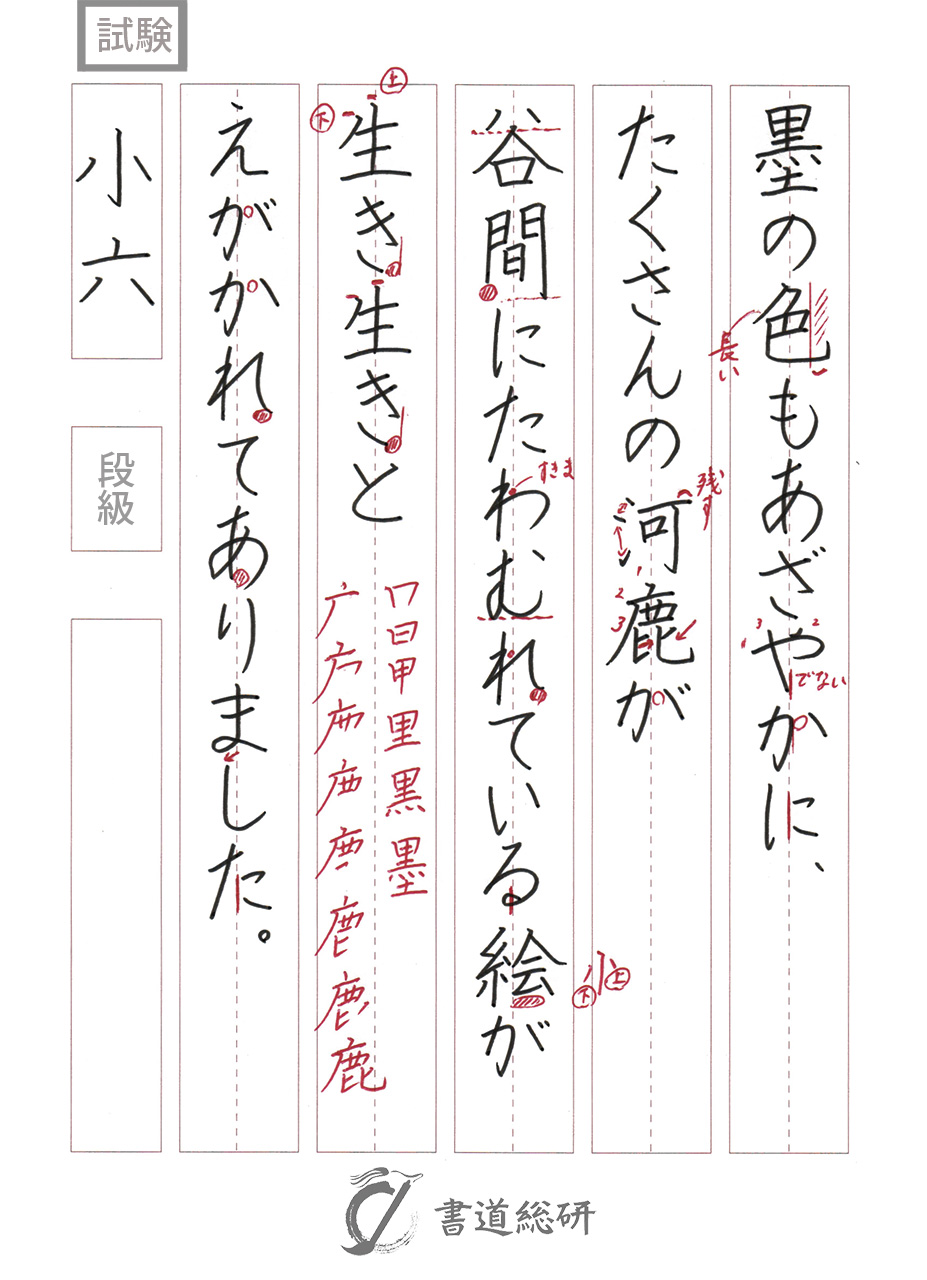 試験
墨の色もあざやかに、
長い
でない
たくさんの河鹿が
残す
1
2
3
谷間にたわむれている絵が
すきま
上
下
生き生きと
上
下
えがかれてありました。
小六
段級
書道総研